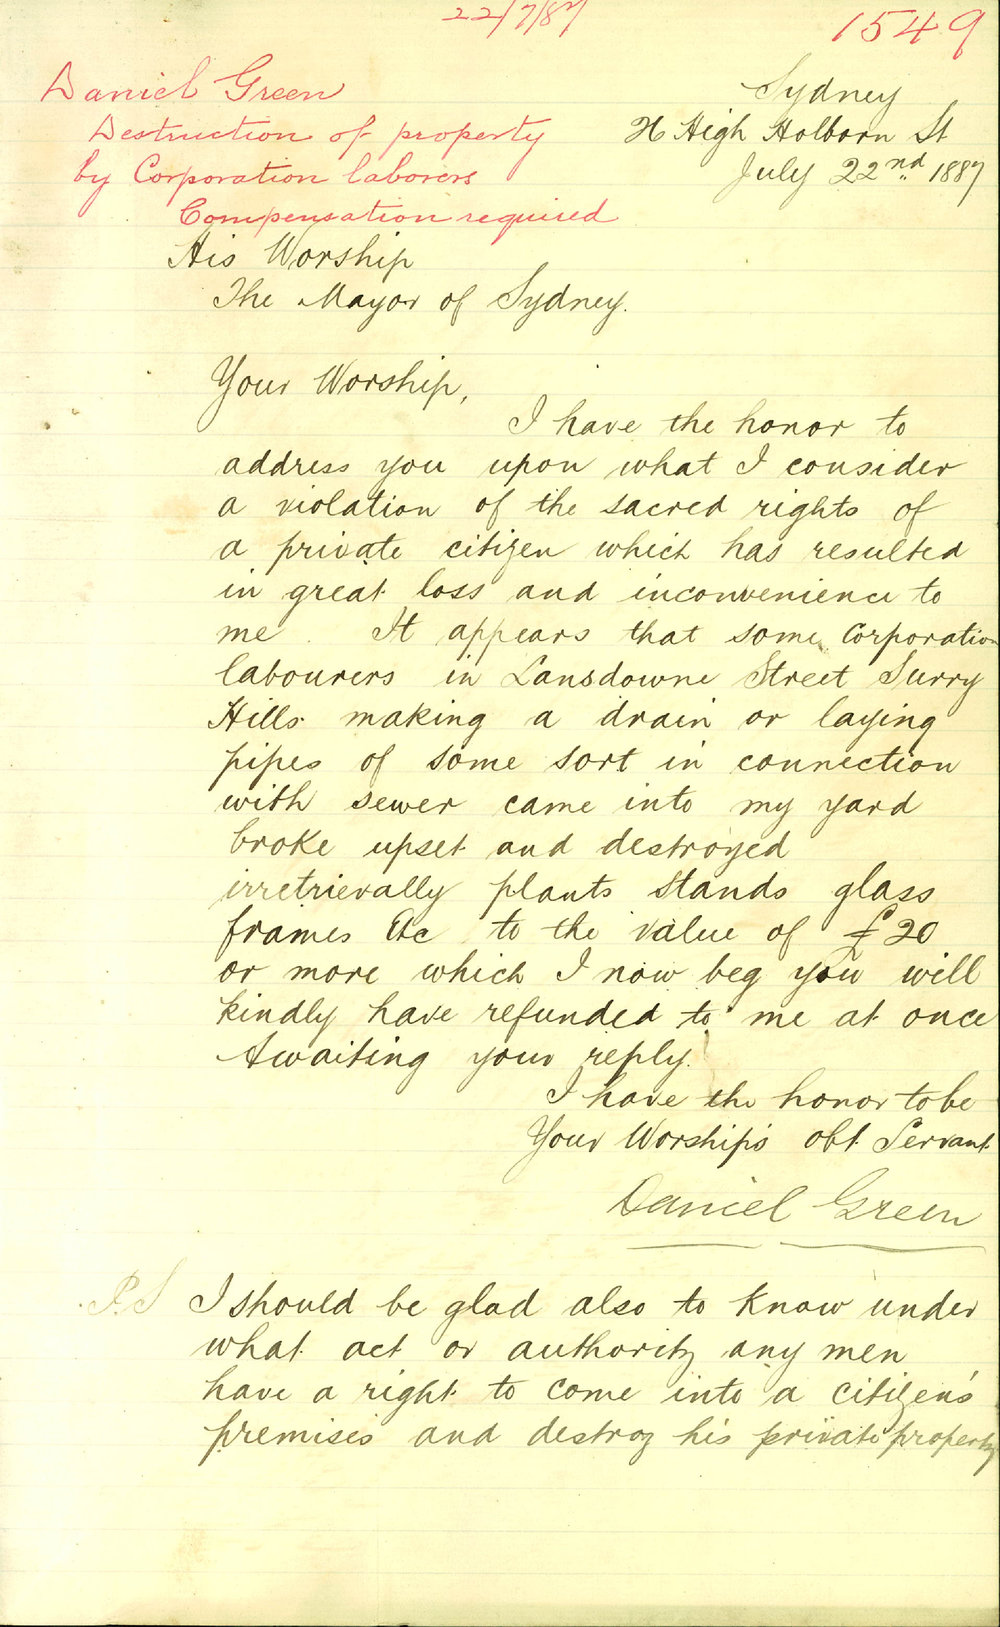 22/7/87
1549
Daniel Green
Destruction of property
by Corporation laborers
Compensation required
Sydney
High Holborn St
July 22nd. 1887
His Worship
The Mayor of Sydney.
Your Worship,
I have the honor to
address you upon what I consider
a violation of the sacred rights of
a private citizen which has resulted
in great loss and inconvenience to
me. It appears that some Corporation
labourers in Lansdowne Street Surry
Hills making a drain or laying
pipes of some sort in connection
with sewer came into my yard
broke upset and destroyed
irretrievally plants stands glass
frames &c to the value of £20
or more which I now beg you will
kindly have refunded to me at once
Awaiting your reply.
I have the honor to be
Your Worship's obt. Servant
Daniel Green
P.S I should be glad also to know under
what act or authority any men
have a right to come into a citizen's
premises and destroy his private property